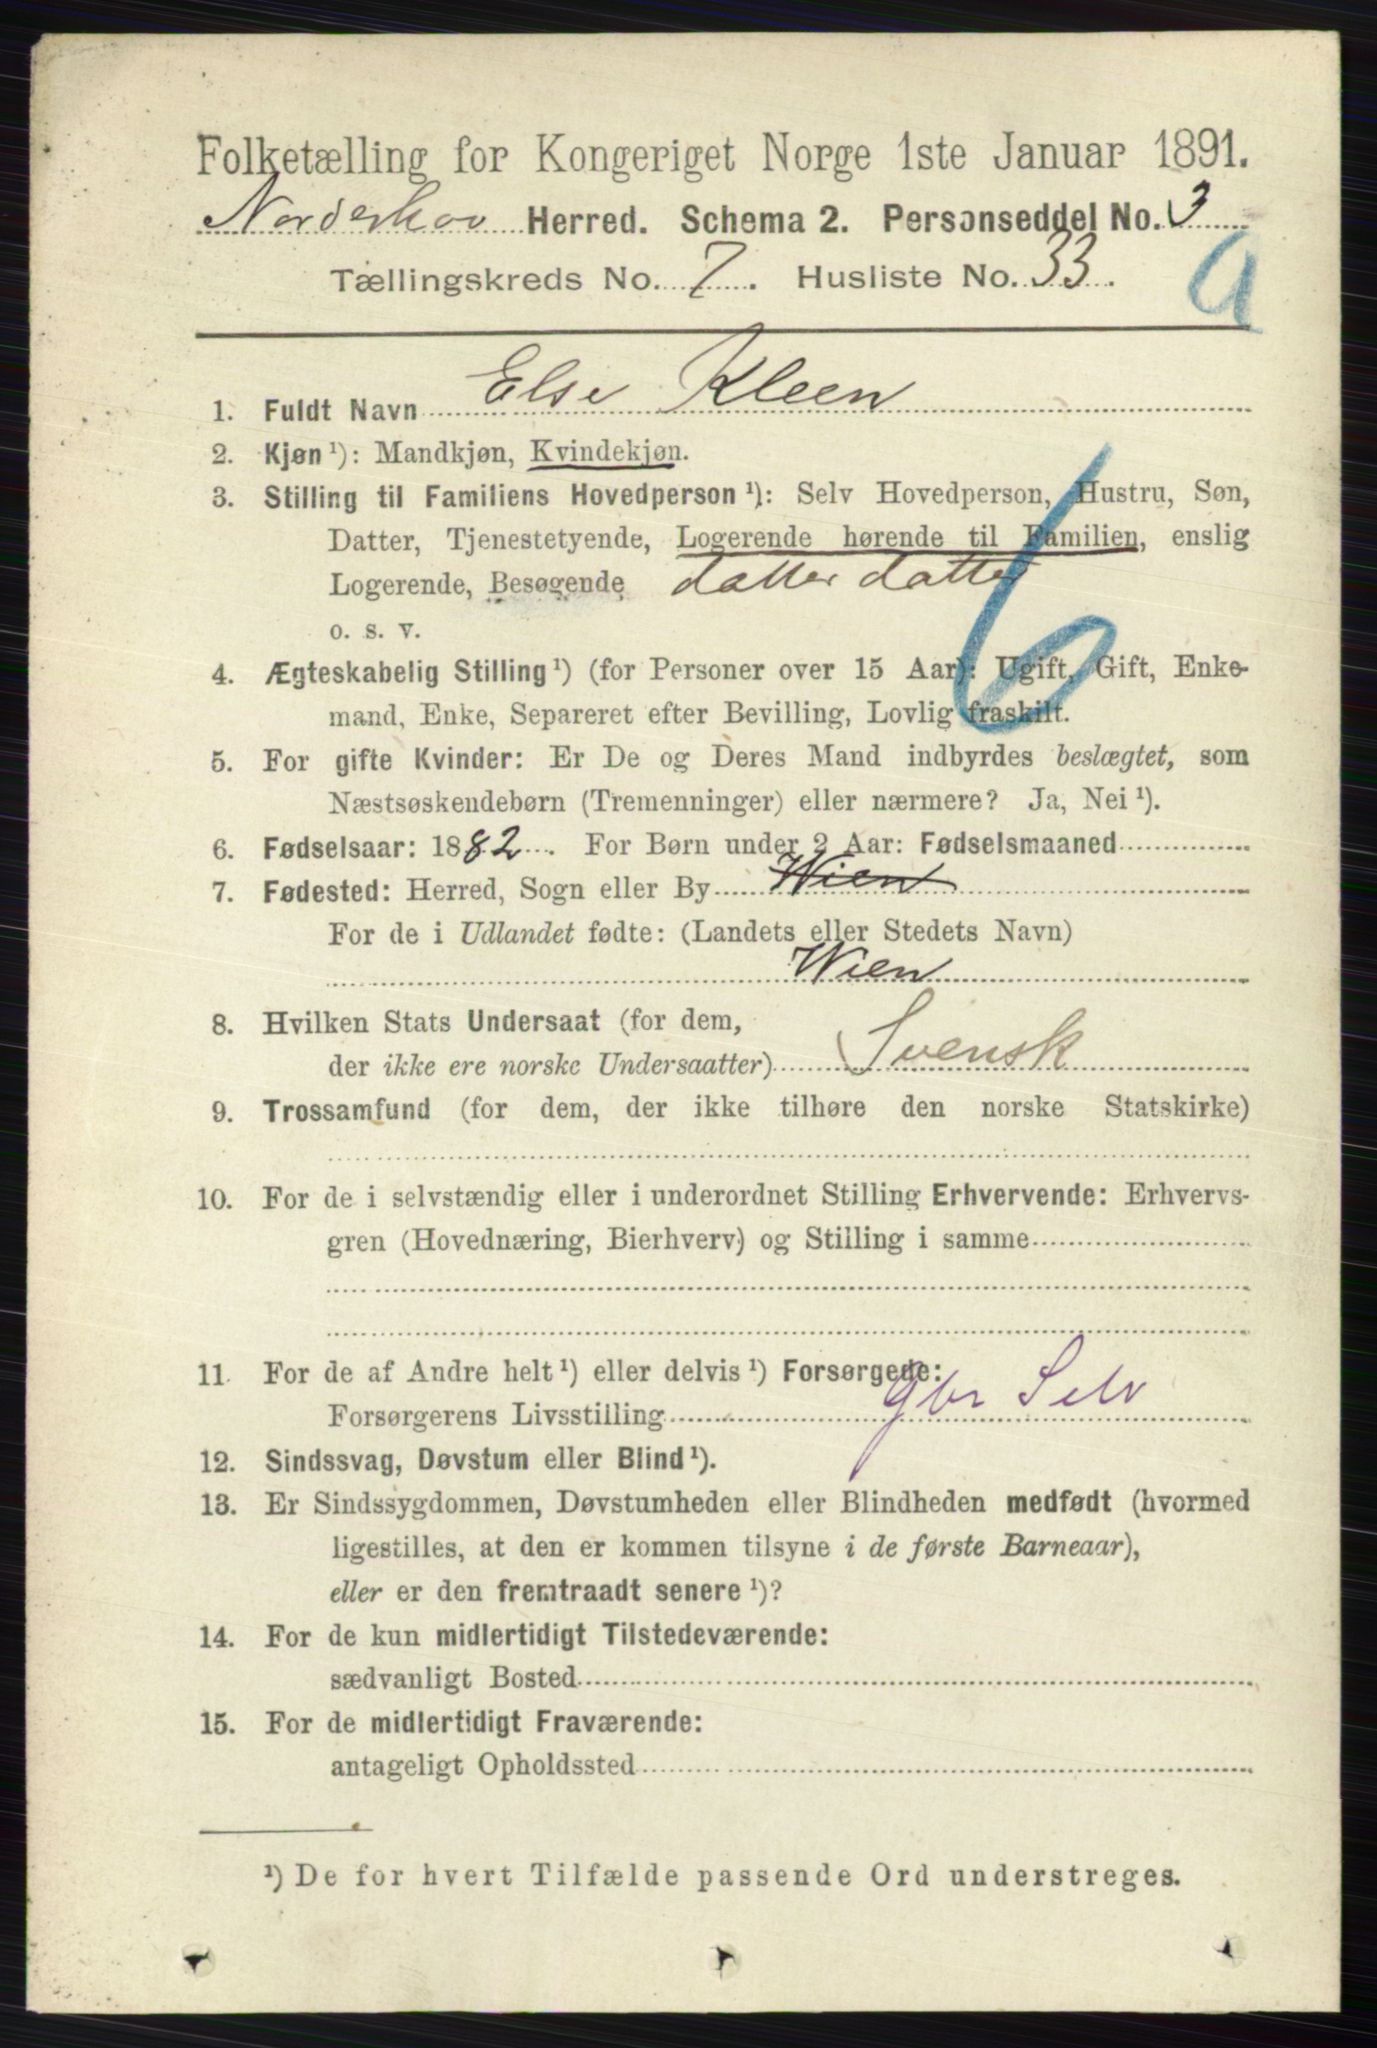 Folketælling for Kongeriget Norge 1ste Januar 1891.
Norderhov Herred. Schema 2. Personseddel No. 3
Tællingskreds No. 7. Husliste No. 33.
a
1. Fuldt Navn Else Kleen
2. Kjøn ¹): Mandkjøn, Kvindekjøn.
3. Stilling til Familiens Hovedperson ¹): Selv Hovedperson, Hustru, Søn,
Datter, Tjenestetyende, Logerende hørende til Familien, enslig
Logerende, Besøgende datterdatter
o. s. v.
6
4. Ægteskabelig Stilling ¹) (for Personer over 15 Aar): Ugift, Gift, Enke-
mand, Enke, Separeret efter Bevilling, Lovlig fraskilt.
5. For gifte Kvinder: Er De og Deres Mand indbyrdes beslægtet, som
Næstsøskendebørn (Tremenninger) eller nærmere? Ja, Nei ¹).
6. Fødselsaar: 1882. For Børn under 2 Aar: Fødselsmaaned
7. Fødested: Herred, Sogn eller By Wien
For de i Udlandet fødte: (Landets eller Stedets Navn)
Wien
8. Hvilken Stats Undersaat (for dem,
der ikke ere norske Undersaatter) Svensk
9. Trossamfund (for dem, der ikke tilhøre den norske Statskirke)
10. For de i selvstændig eller i underordnet Stilling Erhvervende: Erhvervs-
gren (Hovednæring, Bierhverv) og Stilling i samme
11. For de af Andre helt ¹) eller delvis ¹) Forsørgede:
Forsørgerens Livsstilling Gbr Selv
12. Sindssvag, Døvstum eller Blind ¹).
13. Er Sindssygdommen, Døvstumheden eller Blindheden medfødt (hvormed
ligestilles, at den er kommen tilsyne i de første Barneaar),
eller er den fremtraadt senere ¹)?
14. For de kun midlertidigt Tilstedeværende:
sædvanligt Bosted
15. For de midlertidigt Fraværende:
antageligt Opholdssted
¹) De for hvert Tilfælde passende Ord understreges.